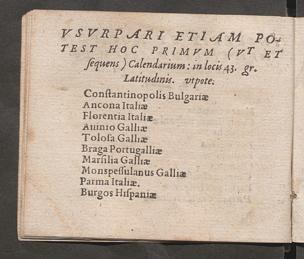 VSVRPARI ETIAM PO-
TEST HOC PRIMVM (VT ET
sequens) Calendarium: in locis 43. gr.
Latitudinis. vtpote.
Constantinopolis Bulgariæ
Ancona Italiæ
Florentia Italiæ
Auinio Galliæ
Tolosa Galliæ
Braga Portugalliæ
Marsilia Galliæ
Monspessulanus Galliæ
Parma Italiæ.
Burgos Hispaniæ